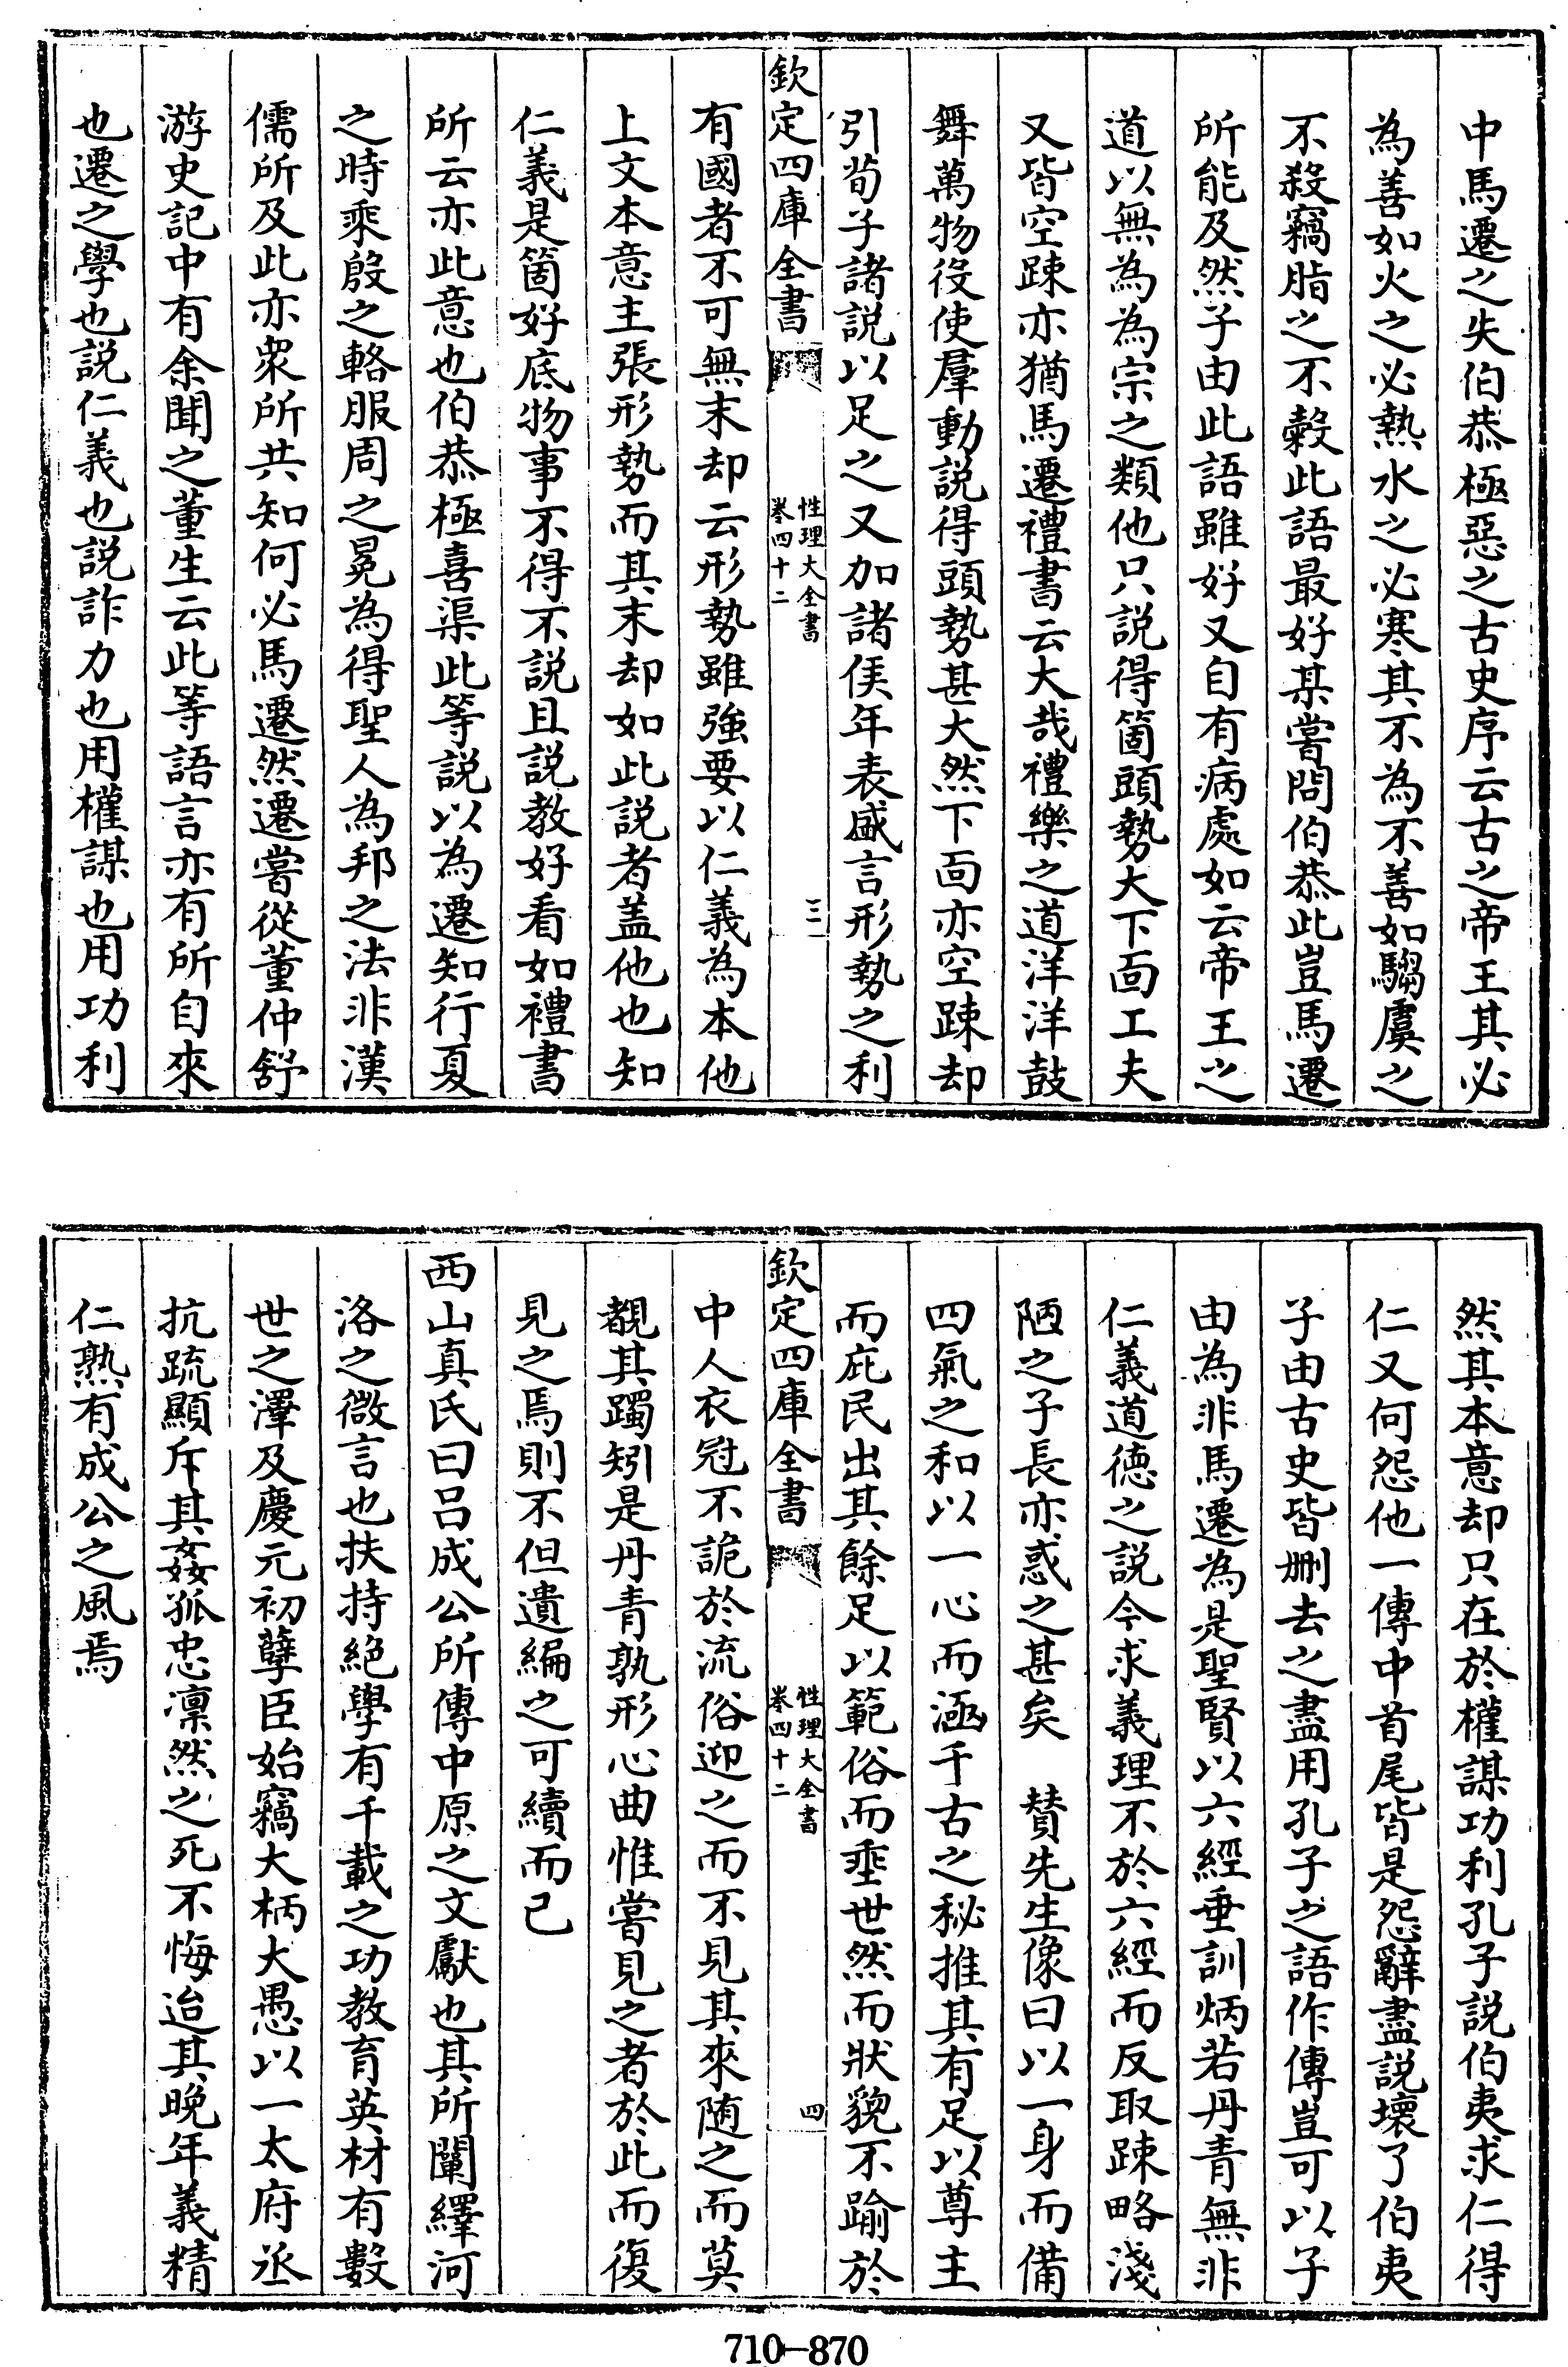 中馬遷之失伯恭極惡之古史序云古之帝王其必
為善如火之必熱水之必寒其不為不善如騶虞之
不殺竊脂之不穀此語最好某嘗問伯恭此豈馬遷
所能及然子由此語雖好又自有病處如云帝王之
道以無為為宗之類他只說得箇頭勢大下面工夫
又皆空疎亦猶馬遷禮書云大哉禮樂之道洋洋鼓
舞萬物役使羣動說得頭勢甚大然下面亦空疎却
引荀子諸說以足之又加諸侯年表盛言形勢之利
欽定四庫全書
性理大全書
卷四十二
三
有國者不可無末却云形勢雖強要以仁義為本他
上文本意主張形勢而其末却如此說者蓋他也知
仁義是箇好底物事不得不說且說教好看如禮書
所云亦此意也伯恭極喜渠此等說以為遷知行夏
之時乘殷之輅服周之冕為得聖人為邦之法非漢
儒所及此亦衆所共知何必馬遷然遷嘗從董仲舒
游史記中有余聞之董生云此等語言亦有所自來
也遷之學也說仁義也說詐力也用權謀也用功利
然其本意却只在於權謀功利孔子說伯夷求仁得
仁又何怨他一傳中首尾皆是怨辭盡說壞了伯夷
子由古史皆刪去之盡用孔子之語作傳豈可以子
由為非馬遷為是聖賢以六經垂訓炳若丹青無非
仁義道德之說今求義理不於六經而反取疎略淺
陋之子長亦惑之甚矣　贊先生像曰以一身而備
四氣之和以一心而涵千古之秘推其有足以尊主
而庇民出其餘足以範俗而垂世然而狀貌不踰於
欽定四庫全書
性理大全書
卷四十二
四
中人衣冠不詭於流俗迎之而不見其來随之而莫
覩其躅矧是丹青孰形心曲惟嘗見之者於此而復
見之焉則不但遺編之可續而已
西山真氏曰呂成公所傳中原之文獻也其所闡繹河
洛之微言也扶持絕學有千載之功教育英材有數
世之澤及慶元初孽臣始竊大柄大愚以一太府丞
抗疏顯斥其姦孤忠凛然之死不悔迨其晚年義精
仁熟有成公之風焉
710-870